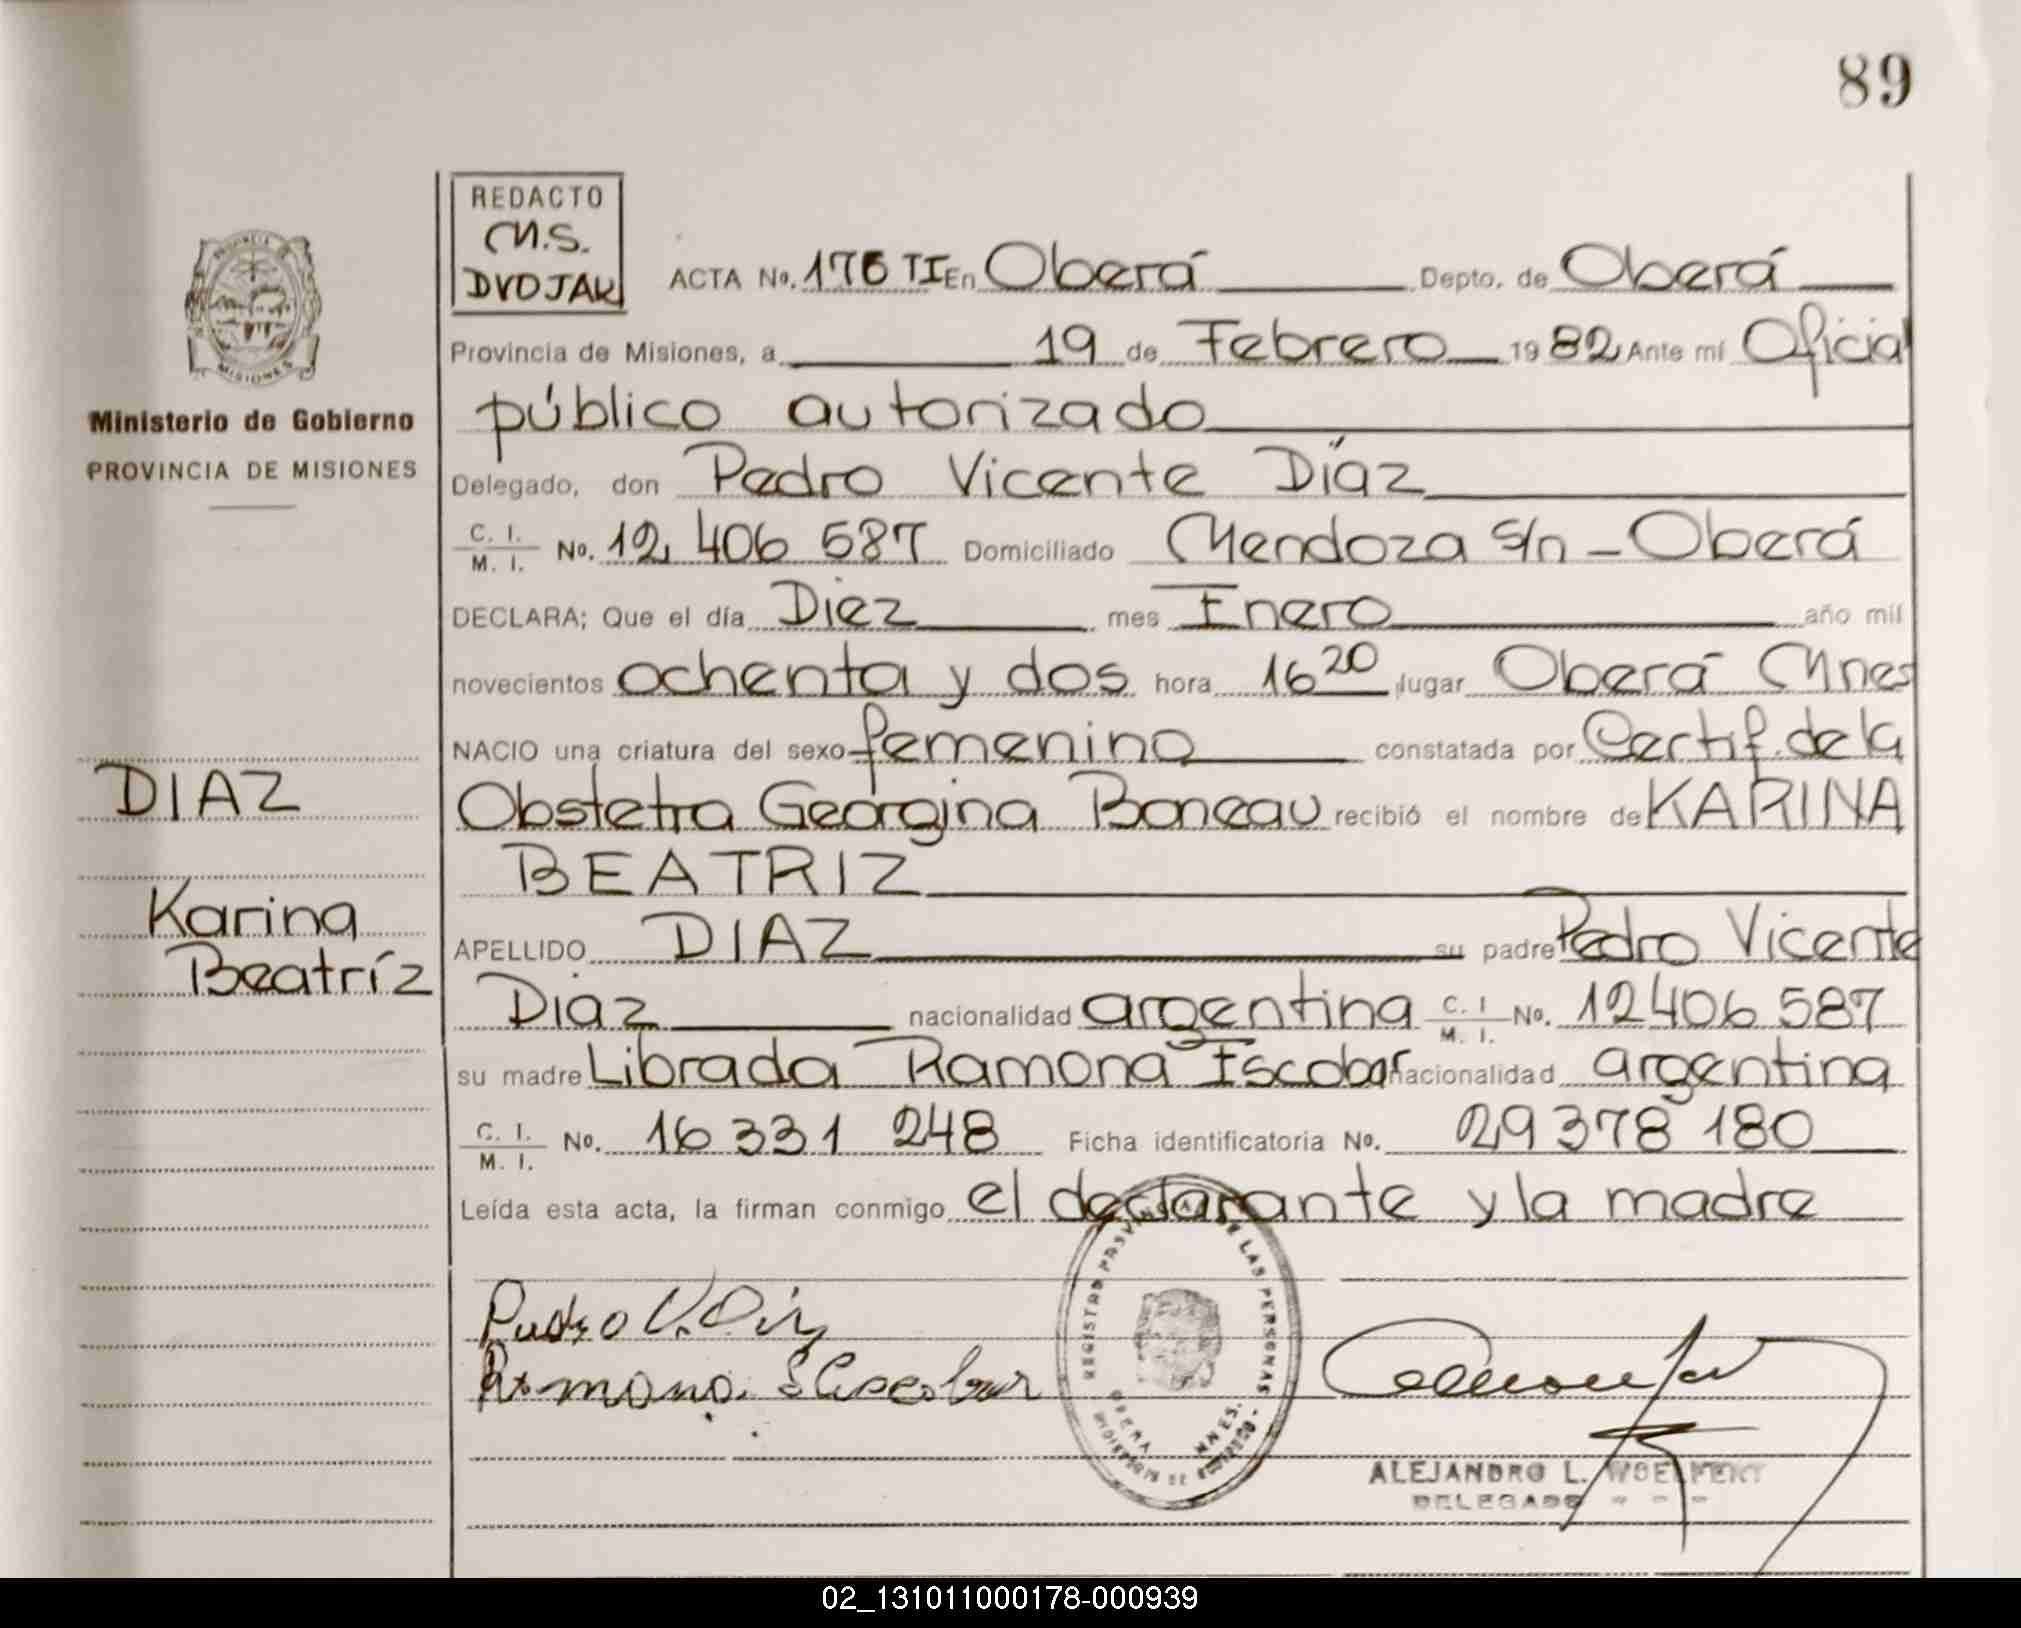 89
REDACTO
M.S.
DVOJAK
ACTA No. 176 TI En Oberá Depto. de Oberá
Provincia de Misiones, a 19 de Febrero 1982 Ante mí Oficial
público autorizado
Delegado, don Pedro Vicente Díaz
C. I. / M. I. No. 12 406 587 Domiciliado Mendoza s/n - Oberá
DECLARA; Que el día Diez mes Enero año mil
novecientos ochenta y dos hora 16 20 lugar Oberá Mnes
NACIO una criatura del sexo femenino constatada por Certif. de la
Obstetra Georgina Boneau recibió el nombre de KARINA
BEATRIZ
APELLIDO DIAZ su padre Pedro Vicente
Diaz nacionalidad argentina C. I / M. I. No. 12406 587
su madre Librada Ramona Escobar nacionalidad argentina
C. I. / M. I. No. 16 331 248 Ficha identificatoria No. 29 378 180
Leída esta acta, la firman conmigo el declarante y la madre
PROVINCIA DE
MISIONES
Ministerio de Gobierno
PROVINCIA DE MISIONES
DIAZ
Karina
Beatríz
Pedro V. Díaz
Ramona Escobar
DE LAS PERSONAS
OBERA MNES.
ALEJANDRO L.
DELEGADO
02_131011000178-000939